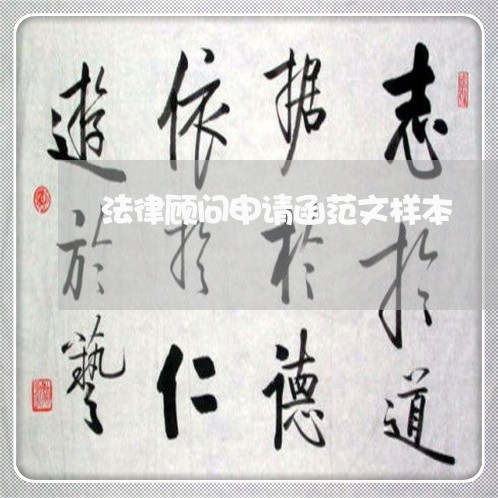 志於道
据於德
依於仁
遊於藝
法律顾问申请函范文样本